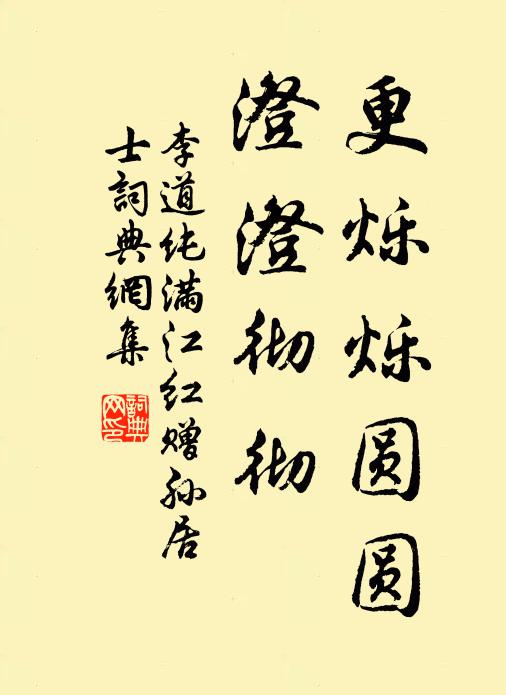 更烁烁圆圆
澄澄彻彻
李道纯满江红赠孙居
士詞典網集
詞典
网印